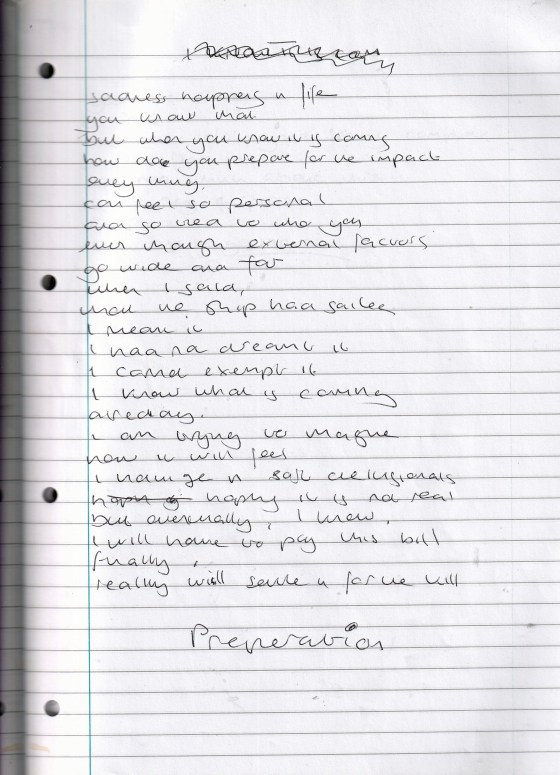 sadness happens in life
you know that
but when you know it is coming
how do you prepare for the impact
every thing.
can feel so personal
and so tied to who you
even though external factors
go wide and far
when I said,
that the ship had sailed
I mean it
I had not dreamt it
I cannot exempt it
I know what is coming
already.
I am trying to imagine
how it will feel
I indulge in soft delusionals
happy it is not real
but eventually, I know,
I will have to pay this bill
finally,
reality will settle in for the kill
Preperation